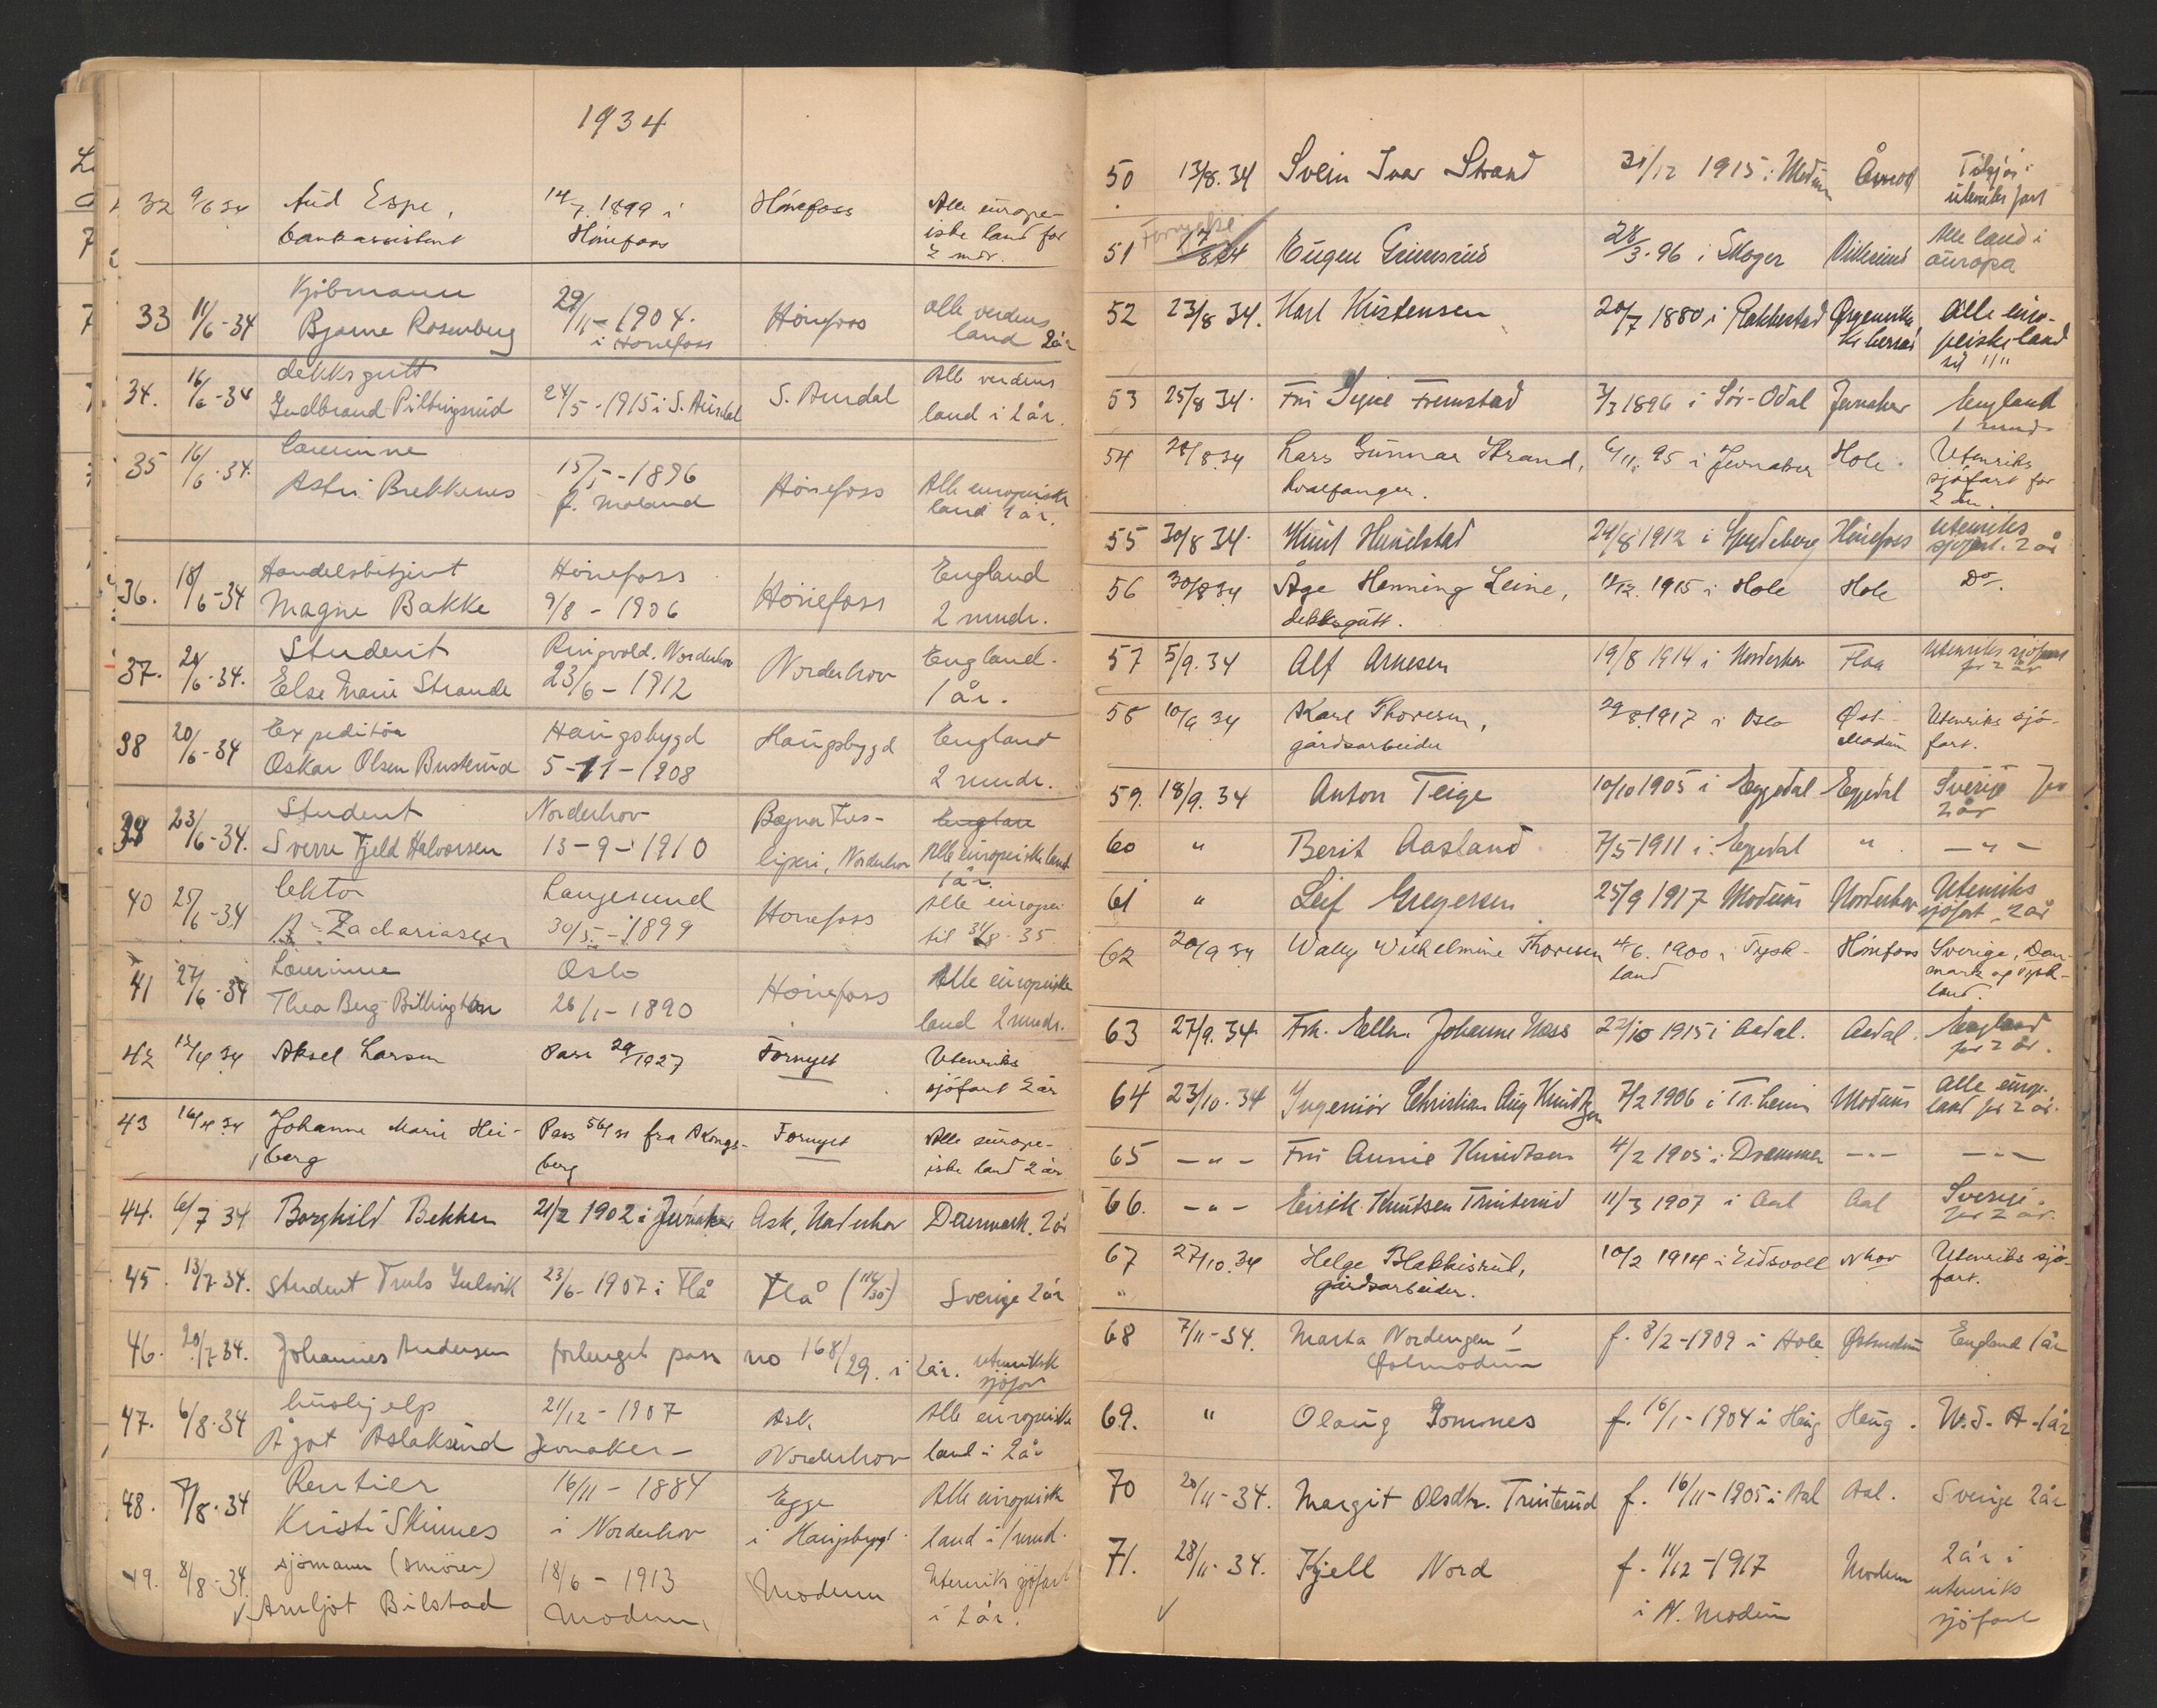 1934
32 9/6 34 Aud Espe, 14/7 1899 i Hönefoss Alle europe-
bankassistent Hönefoss iske land for
2 mdr.
Kjöbmann
33 11/6-34 Bjarne Rosenberg 29/11-1904. Hönefoss alle verdens
i Hönefoss land 2 år
dekksgutt Alle verdens
34. 16/6-34 Gudbrand Pilbingsrud 24/5-1915 i S. Aurdal S. Aurdal land i 2 år.
Lærerinne
35 16/6-34. Astri Brekkenes 15/5-1896 Hönefoss Alle europeiske
f. Moland land 1 år.
Handelsbetjent Hönefoss England
36. 18/6-34 Magne Bakke 9/8-1906 Hönefoss 2 mndr.
Student Ringvold. Norderhov England.
37. 20/6-34. Else Marie Strande 23/6-1912 Norderhov 1 år.
Expeditör Haugsbygd Haugsbygd England
38 20/6-34 Oskar Olsen Buskerud 5-11-1908 2 mndr.
Student Norderhov Bægna Tres-
39 23/6-34. Sverre Fjeld Halvorsen 13-9-1910 liperi, Norderhov Alle europeiske land
1 år.
lektor Langesund Alle europei
40 25/6-34 A. Zachariassen 30/5-1899 Hönefoss til 31/8-35
Lærerinne Oslo Alle europeiske
41 27/6-34 Thea Berg Billington 26/1-1890 Hönefoss land 2 mndr.
42 Aksel Larsen Pass 29/1927 Fornyet Utenriks
sjöfart 2 år
43 Johanne Marie Hei- Pass 56/31 fra Kongs- Fornyet Alle europe-
berg berg iske land 2 år
44. 6/7 34 Borghild Bekken 21/2 1902 i Jevnaker Ask, Norderhov Danmark. 2 år
45. 13/7-34. student Truls Gulsvik 23/6-1907 i Flå Flå Sverige 2 år
46. 20/7-34. Johannes Andersen forlenget pass no 168/29. i 2 år. utenriksk
sjöfart
hushjelp 21/12-1907 Ask Alle europeiske
47. 6/8-34 Ågot Aslaksrud Jevnaker- Norderhov land i 2 år
Rentier 16/11-1884 Egge Alle europeiske
48. 7/8-34 Kristi Skinnes i Norderhov i Haugsbygd. land i 1 mnd.
sjömann (smörer) 18/6-1913 Modum Utenriks sjöfart
49. 8/8-34. Arnljot Bilstad Modum. i 2 år.
50 13/8.34 Svein Ivar Strand 31/12 1915 i Modum Åmot Tilsjös i
utenriks fart
Fornyelse
51 17/8 34 Eugen Grimsrud 28/3.96 i Skoger Vikersund Alle land i
europa
52 23/8 34. Karl Kristensen 20/7 1880 i Rakkestad Alle euro-
peiske land
53 25/8 34. Fru Signe Fremstad 7/3 1896 i Sör-Odal Jevnaker England
1 mnd
54 28/8.34 Lars Gunnar Strand, 6/11. 95 i Jevnaker Hole. Utenriks
hvalfanger. sjøfart for
2 år.
55 30/8 34. Knut Hundstad 24/8 1912 i Spydeberg Hönefoss utenriks
sjøfart. 2 år
56 30/8 34 Åge Henning Leine, 11/12. 1915 i Hole Hole Do.
dekksgutt.
57 5/9.34 Alf Arnesen 19/8 1914 i Norderhov Flaa Utenriks sjöfart
for 2 år
58 10/9 34 Karl Thoresen, 29/8.1917 i Oslo Øst- Utenriks sjö-
gårdsarbeider Modum fart.
59. 18/9.34 Anton Teige 10/10 1905 i Eggedal Eggedal Sverige for
2 år
60 " Berit Aasland 7/5 1911 i Eggedal " - " -
61 " Leif Gregersen 25/9 1917 Modum Norderhov Utenriks
sjöfart 2 år
62 20/9 34 Wally Wilhelmine Thoresen 4/6. 1900 i Tysk- Hönefoss Sverige, Dan-
land mark og Tysk-
land.
63 27/9.34. Frk. Ellen Johanne Næss 22/10 1915 i Aadal. Aadal. England
for 2 år.
64 23/10.34 Ingeniör Christian Aug Knudtzon 7/2 1906 i Tr.heim Modum Alle europ.
land for 2 år.
65 - " - Fru Aunie Knudtzon 4/2 1905 i Drammen - " - - " -
66. - " - Eirik Knutsen Trinterud 11/3 1907 i Aal Aal Sverige.
for 2 år.
67 27/10.34 Helge Blakkisrud, 10/2 1914 i Eidsvoll Nhov Utenriks sjö-
" gårdsarbeider. fart.
68 7/11-34. Marta Nordengen f. 8/2-1909 i Hole Østmodum England 1 år
Østmodum
69. " Olaug Sommes f. 16/1-1904 i Haug Haug. U.S.A. 1 år
70 20/11-34. Margit Olsdtr. Trinterud f. 16/11-1905 i Aal Aal. Sverige 2 år
71. 28/11-34. Kjell Nord f. 11/12-1917 Modum 2 år i
i N. Modum utenriks
sjöfart